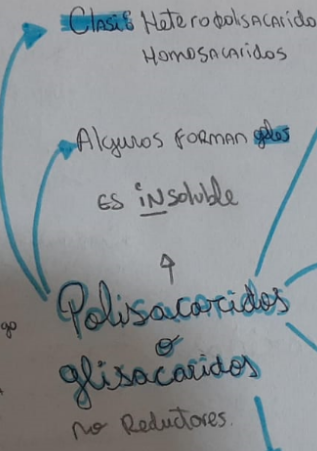 Clasif Heteropolisacarido
Homosacaridos
Algunos FORMAN geles
ES INsoluble
Polisacaridos
o
glisacaridos
no Reductores.
go